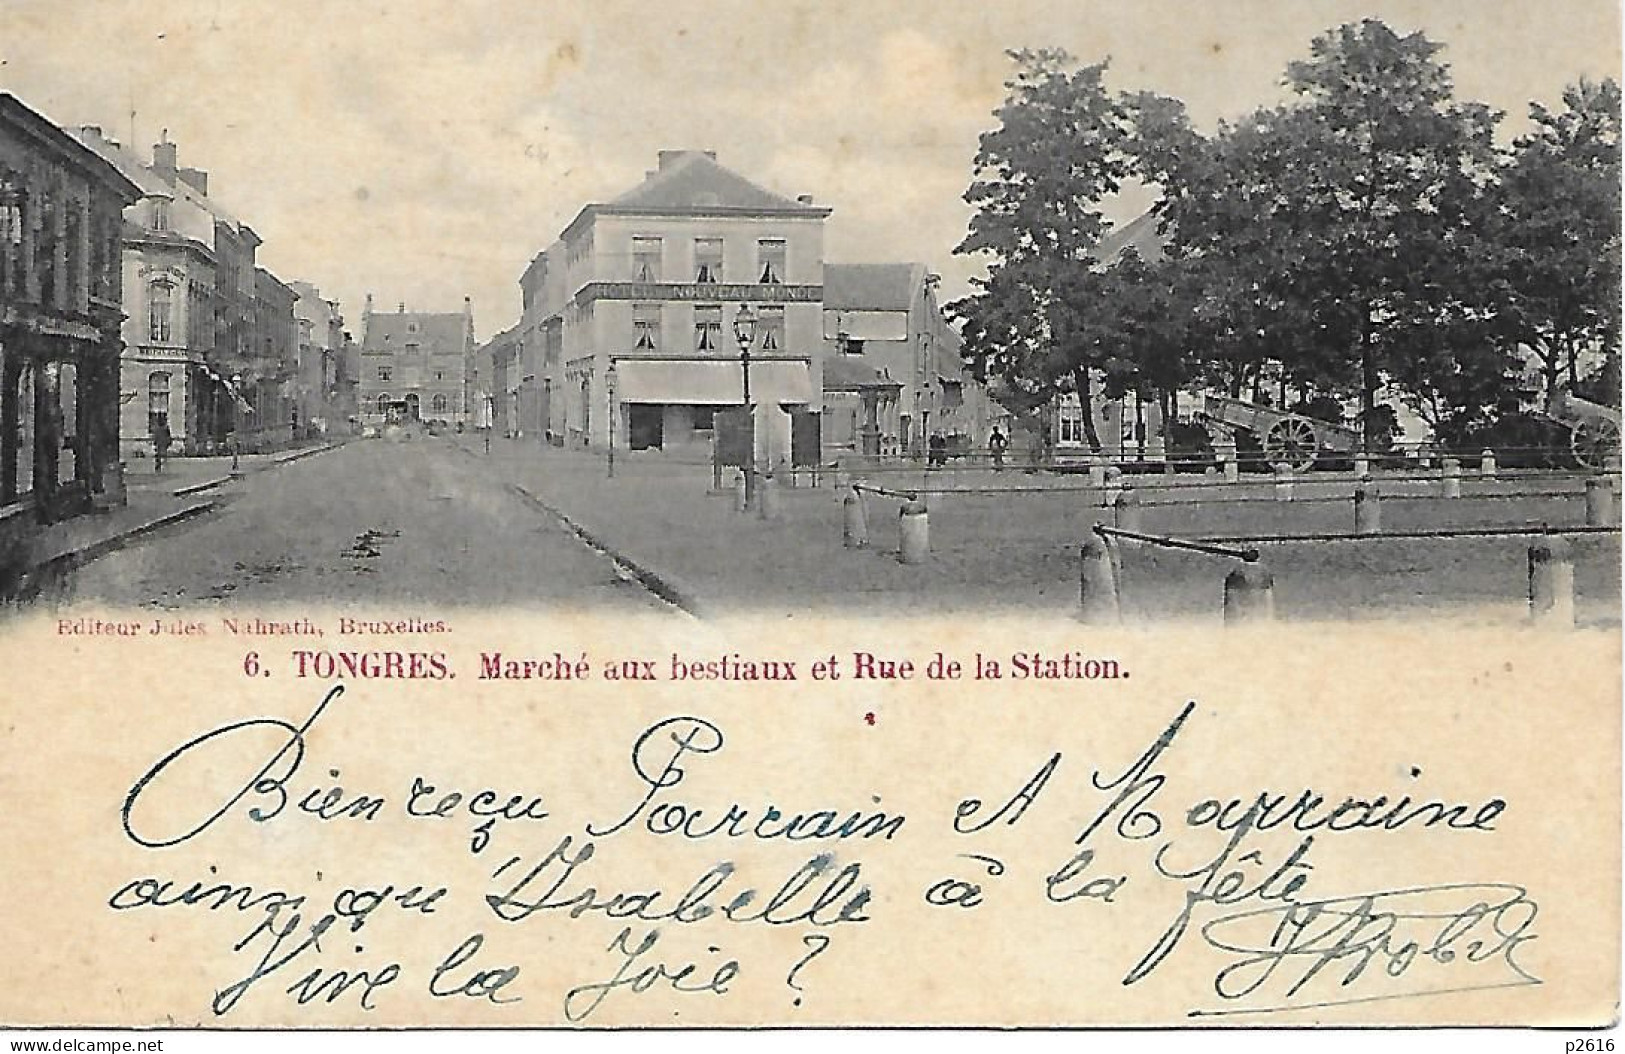 HOTEL NOUVEAU MONDE
Editeur Jules Nahrath, Bruxelles.
6. TONGRES. Marché aux bestiaux et Rue de la Station.
Bien reçu Parrain et Marraine
ainsi qu'Isabelle à la fête
Vive la Joie ?
delcampe.net
p2616